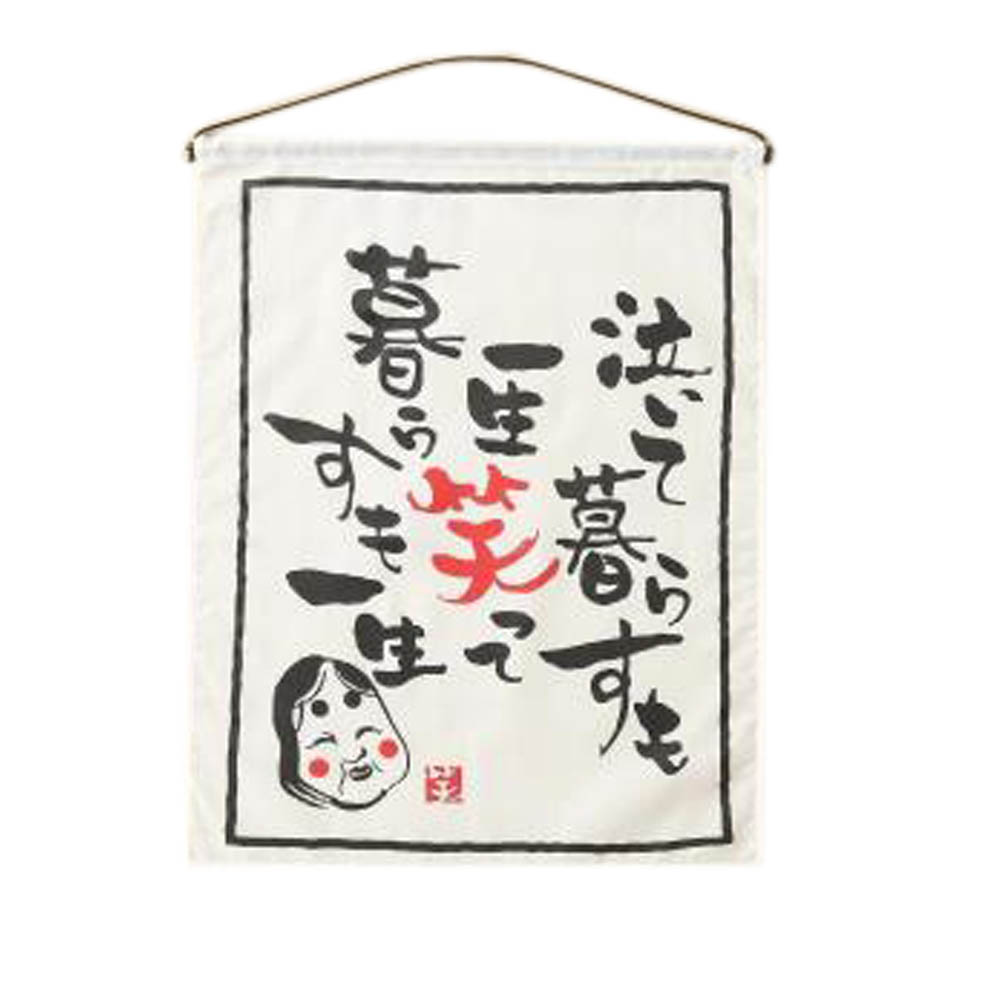 泣いて暮らすも
一生笑って
暮らすも一生